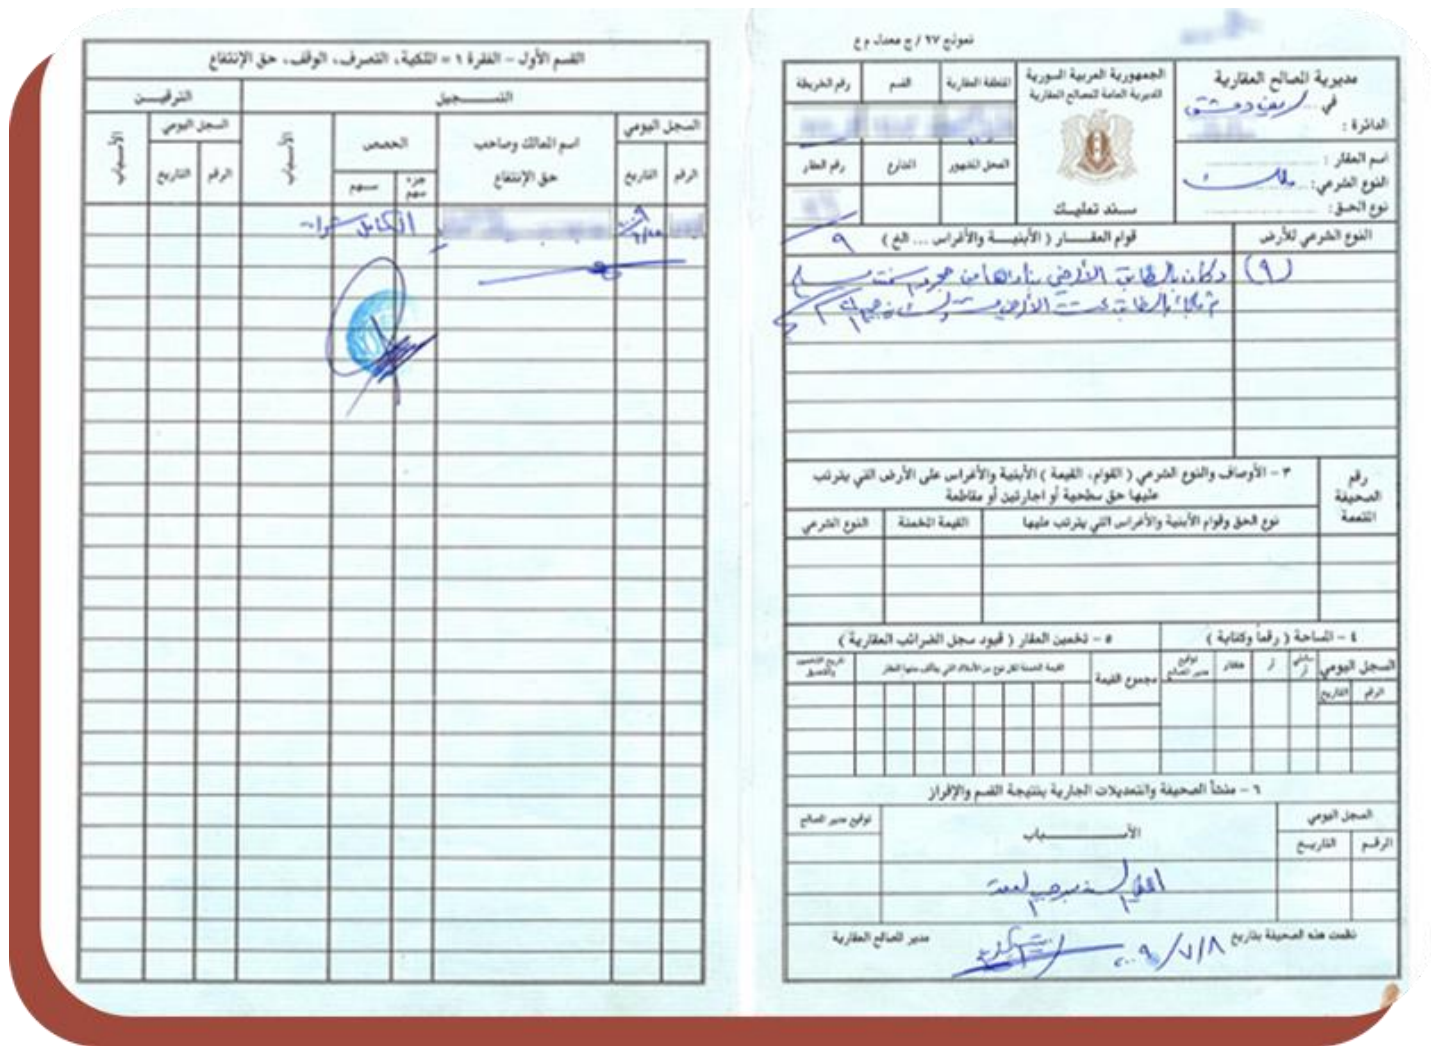 نموذج ٢٧ / ج معدل م ع
مديرية المصالح العقارية
في ريف دمشق
الدائرة :
اسم العقار :
النوع الشرعي: ملك
نوع الحق:
الجمهورية العربية السورية
المديرية العامة للمصالح العقارية
سند تمليك
المنطقة العقارية
القسم
رقم الخريطة
المحل المشهور
الشارع
رقم العقار
النوع الشرعي للأرض
قوام العقــار ( الأبنيــة والأغراس ... الخ )
٩
(٩)
دكان بالطابق الأرضي بناؤها من حجر
بالطابق تحت الأرضي
رقم الصحيفة المتممة
٣ - الأوصاف والنوع الشرعي ( القوام، القيمة ) الأبنية والأغراس على الأرض التي يترتب
عليها حق سطحية أو اجارتين أو مقاطعة
نوع الحق وقوام الأبنية والأغراس التي يترتب عليها
القيمة المخمنة
النوع الشرعي
٤ - المساحة ( رقماً وكتابة )
٥ - تخمين العقار ( قيود سجل الضرائب العقارية )
السجل اليومي
الرقم
التاريخ
سانتي آر
آر
هكتار
توقيع مدير المصالح
مجموع القيمة
القيمة المخمنة لكل نوع من الأملاك التي يتألف منها العقار
تاريخ التخمين
٦ - منشأ الصحيفة والتعديلات الجارية بنتيجة القسم والإفراز
السجل اليومي
الرقم
التاريخ
الأســـــباب
توقيع مدير المصالح
نظمت هذه الصحيفة بتاريخ ٨/٧/٢٠٠٩
مدير المصالح العقارية
القسم الأول - الفقرة ١ = الملكية، التصرف، الوقف، حق الإنتفاع
التســـجيل
الترقيــن
السجل اليومي
الرقم
التاريخ
اسم المالك وصاحب
حق الإنتفاع
الحصص
جزء سهم
ســهم
الأسباب
السجل اليومي
الرقم
التاريخ
الأسباب
الكامل شراء